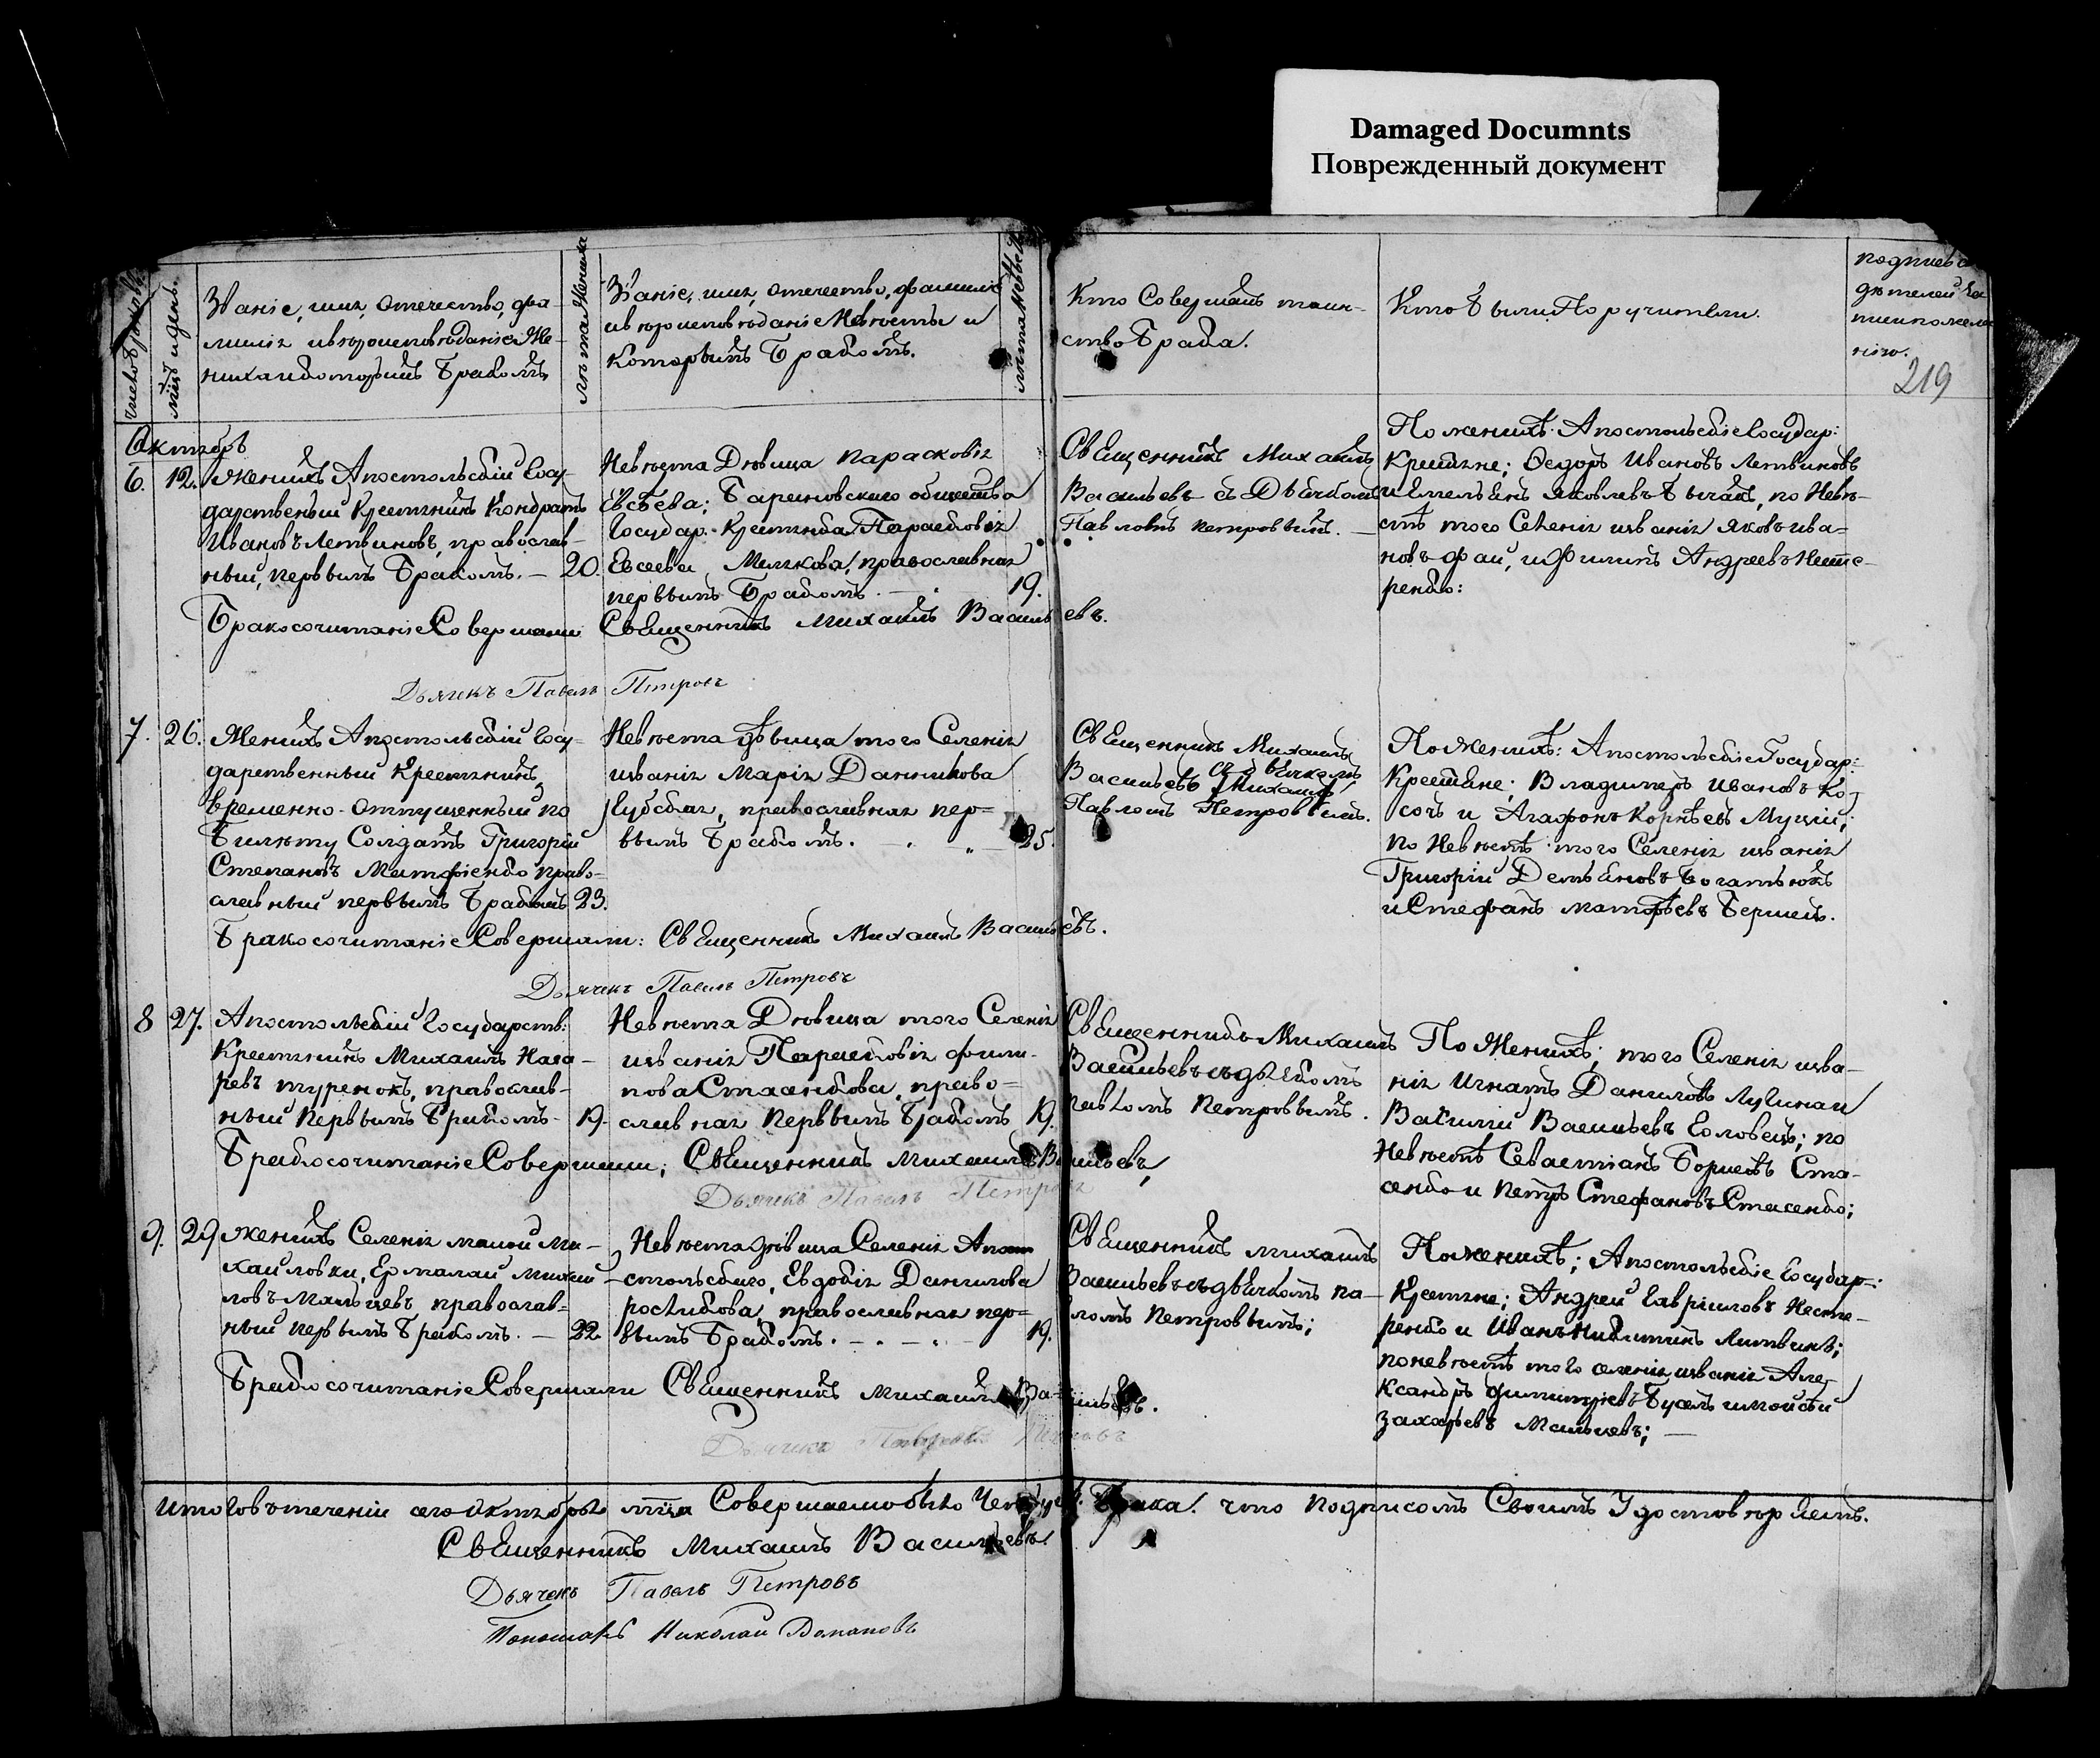 Damaged Documnts
Поврежденный документ
число браковъ
мѣсяцъ и день.
Званіе, имя, отечество, фа-
милія и вѣроисповѣданіе Же-
ниха и которымъ бракомъ
лѣта Жениха
Званіе, имя, отечество, фамилія
и вѣроисповѣданіе Невѣсты и
которымъ бракомъ.
лѣта Невѣсты
Кто Совершалъ таин-
ство брака.
Кто были Поручители.
219
Октябрь
6. 12. Женихъ Апостольскій Госу-
дарственный Крестянинъ Кондратъ
Ивановъ Летвиновъ, православ-
ный, первымъ бракомъ. — 20.
Невѣста Дѣвица Парасковія
Евсѣева; Бариновскаго общества
Государ. Крестянка Парасковія
Евсеева Милкова, православная
первымъ бракомъ. — 19.
Священникъ Михаилъ
Васильевъ съ Дьячкомъ
Павломъ Петровымъ. —
По женихѣ: Апостольскіе Государ:
Крестяне; Ѳедоръ Ивановъ Летвиновъ
и Емельянъ Яковлевъ Бычакъ, по Невѣ-
стѣ того Селенія званія Яковъ Ива-
новъ Фай, и Филипъ Андреевъ Несте-
ренко:
Бракосочитаніе Совершали Священникъ Михаилъ Васильевъ.
Дьячекъ Павелъ Петровъ
7. 26. Женихъ Апостольскій Госу-
дарственный Крестянинъ,
временно-отпущенный по
билету Солдатъ Григорій
Степановъ Матфіенко право-
славный первымъ бракомъ 23.
Невѣста дѣвица того Селенія
званія Марія Данникова
Кубская, православная пер-
вымъ бракомъ. — 25.
Священникъ Михаилъ
Васильевъ съ дьячкомъ
Павломъ Петровымъ.
По Женихѣ: Апостольскіе Государ:
Крестяне; Владимеръ Ивановъ Ко-
сочъ и Агафонъ Корнѣевъ Муцій;
по Невѣстѣ того Селенія званія
Григорій Демьяновъ Богатыокъ
и Стефанъ Матфѣевъ Бершец.
Бракосочитаніе Совершали: Священникъ Михаилъ Васильевъ.
Дьячекъ Павелъ Петровъ
8 27. Апостольскій Государств:
Крестянинъ Михаилъ Наза-
ревъ Туренокъ, православ-
ный Первымъ бракомъ 19.
Невѣста Дѣвица того Селенія
званія Парасковія Фили-
пова Стасенкова, право-
славная Первымъ бракомъ 19.
Священникъ Михаилъ
Васильевъ съ дьячкомъ
Павломъ Петровымъ.
По Женихѣ; того Селенія зва-
нія Игнатъ Даниловъ Лучинан
Василий Васильевъ Головецъ; по
Невѣстѣ Севастіанъ Борисовъ Ста-
сенко и Петръ Стефановъ Стасенко;
Бракосочитаніе Совершили; Священникъ Михаилъ Васильевъ,
Дьячекъ Павелъ Петровъ
9. 29 женихъ Селенія малой Ми-
хайловки, Ермалай Михай-
ловъ Мальцевъ, православ-
ный первымъ бракомъ. — 22.
Невѣста дѣвица Селенія Апо-
стольскаго, Евдокія Данилова
Росликова, православная пер-
вымъ бракомъ. — 19.
Священникъ Михаилъ
Васильевъ съ дьячкомъ Па-
вломъ Петровымъ;
По женихѣ; Апостольскіе Государ:
Крестяне; Андрей Гавріиловъ Несте-
ренко и Иванъ Никитинъ Литвинъ;
по невѣстѣ того селенія званія Але-
ксандръ Димитріевъ Бусел и Моисѣй
Захарьевъ Мальцевъ; —
Бракосочитаніе Совершали Священникъ Михаилъ Васильевъ.
Дьячекъ Павелъ Петровъ
Итого въ теченіи сего октября мѣсяца Совершаемо было Четыре брака. что подписомъ Своимъ Удостовѣряемъ.
Священникъ Михаилъ Васильевъ.
Дьячекъ Павелъ Петровъ
Пономарь Николай Домановъ